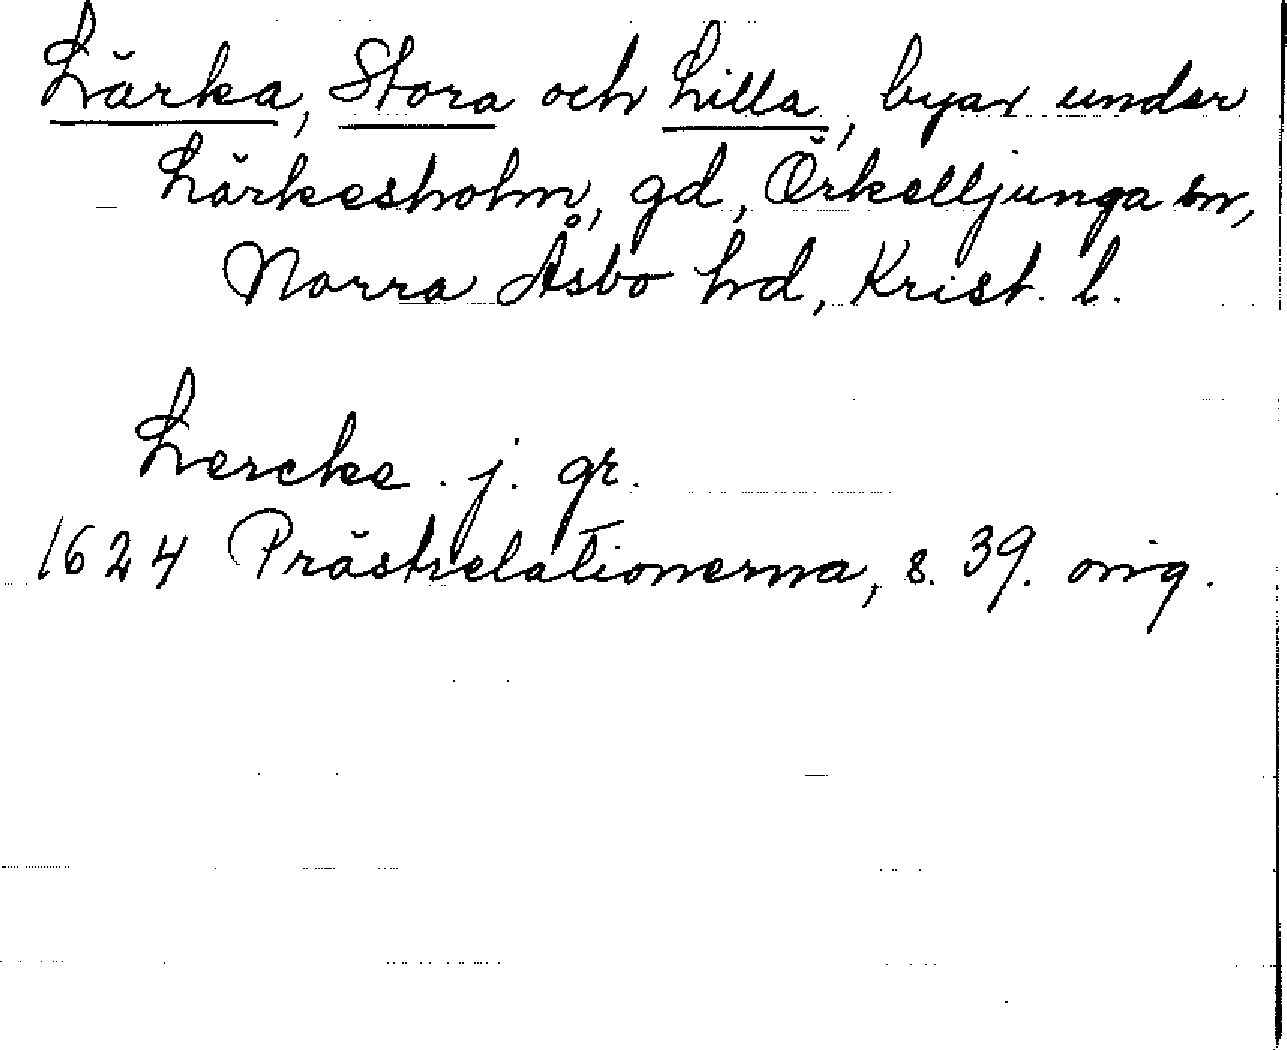 Lärka, Stora och Lilla, byar under
Lärkesholm, gd, Örkelljunga sn,
Norra Åsbo hd, Krist. l.
Lercke . j. gr.
1624 Prästrelationerna, s. 39. orig.